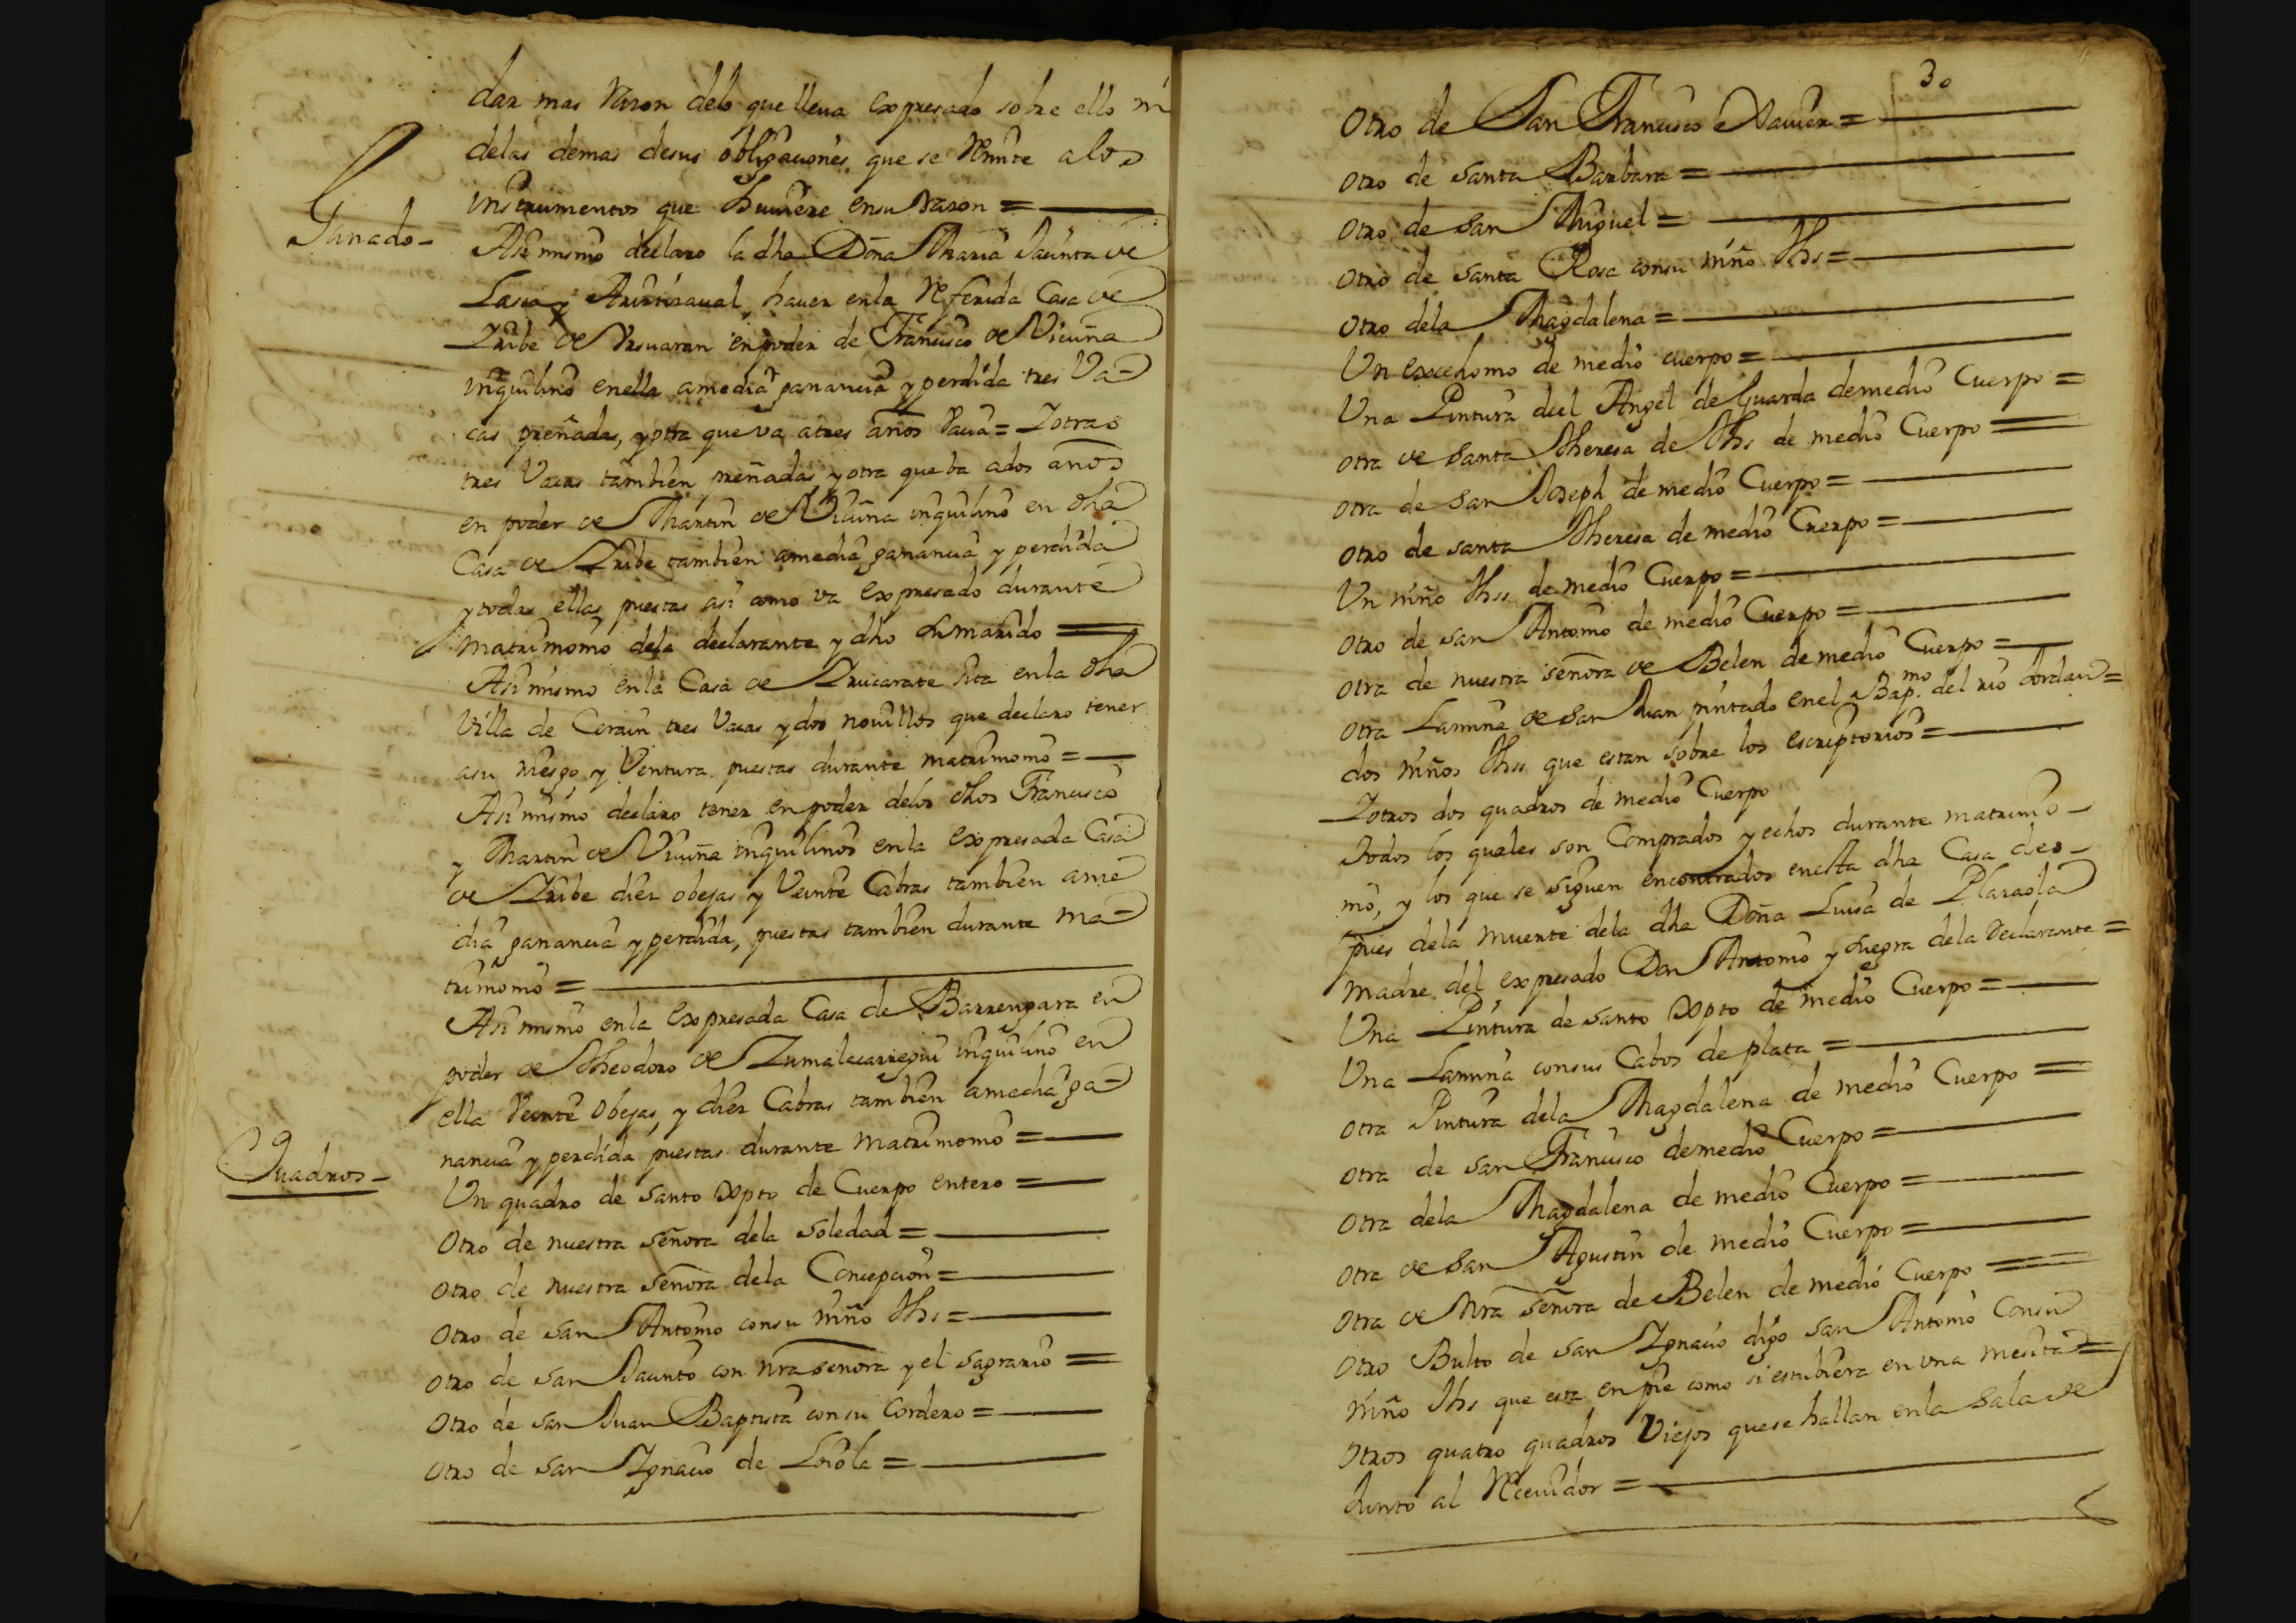 dar mas razon delo que lleua expresado sobre ello ni
delas demas desus obligaciones que se remite alos
instrumentos que huuiere ensu razon =
Ganado-
Asi mismo declaro la dha Doña Maria Jacinta de
Lasa y Aristizaual, hauer enla referida Casa de
Iribe de Ysuaran en poder de Francisco de Vicuña
inquilino enella amedia ganancia y perdida tres Va=
cas preñadas, y otra que va atres años vacia = Y otras
tres Vacas tambien preñadas, y otra que ba ados años
en poder de Martin de Vicuña inquilino en dha
Casa de Iribe tambien amedia ganancia y perdida
y todas ellas puestas asi como va Expresado durante
matrimonio dela declarante y dho su marido =
Asi mismo enla Casa de Irucarate sita enla dha
Villa de Cerain tres Vacas y dos nouillos que declaro tener
asu riesgo, y Ventura puestas durante matrimonio =
Asi mismo declaro tener en poder delos dhos Francisco
y Martin de Vicuña inquilinos enla expresada Casa
de Iribe diez obejas y Veinte Cabras tambien ame
dia ganancia y perdida, puestas tambien durante ma=
trimonio =
Asi mismo enla Expresada Casa de Barrengara en
poder de Theodoro de Zumalacarregui inquilino en
ella Veinte obejas, y diez Cabras tambien amedia ga=
nancia y perdida puestas durante matrimonio =
Quadros-
Un quadro de santo Xpto de Cuerpo entero =
Otro de nuestra señora dela soledad =
Otro de nuestra señora dela Concepcion =
Otro de san Antonio consu niño Jhs =
Otro de san Jacinto con nra senora y el sagrario =
Otro de san Juan Baptista consu Cordero =
Otro de san Ignacio de Loiola =
30
Otro de San Francisco Xauier =
Otro de santa Barbara =
Otro de san Miguel =
Otro de santa Rosa consu niño Jhs =
Otro dela Magdalena =
Un exxehomo de medio cuerpo =
Una Pintura del Angel de Guarda demedio Cuerpo =
Otra de santa Theresa de Jhs de medio Cuerpo =
Otra de san Joseph de medio Cuerpo =
Otro de santa Theresa de medio Cuerpo =
Un niño Jhss de medio Cuerpo =
Otro de san Antonio de medio Cuerpo =
Otra de nuestra señora de Belen de medio Cuerpo =
Otra Lamina de san Juan pintado enel Bap.mo del rio Jordan =
dos niños Jhss que estan sobre los escriptorios =
Y otros dos quadros de medio Cuerpo
Todos los quales son Comprados y echos durante matrimo-
nio, y los que se siguen encontrados enesta dha Casa des-
pues dela muerte dela dha Doña Luisa de Plazaola
madre del expresado Don Antonio y suegra dela declarante =
Una Pintura de santo Xpto de medio Cuerpo =
Una Lamina consus Cabos de plata =
Otra Pintura dela Magdalena de medio Cuerpo =
Otra de san Francisco demedio Cuerpo =
Otra dela Magdalena de medio Cuerpo =
Otra de san Agustin de medio Cuerpo =
Otra de Nra señora de Belen de medio Cuerpo =
Otro Bulto de san Ignacio digo san Antonio Consu
niño Jhs que esta enpie como si estubiera en una mesita =
Otros quatro quadros Viejos quese hallan enla sala de
Junto al Receuidor =